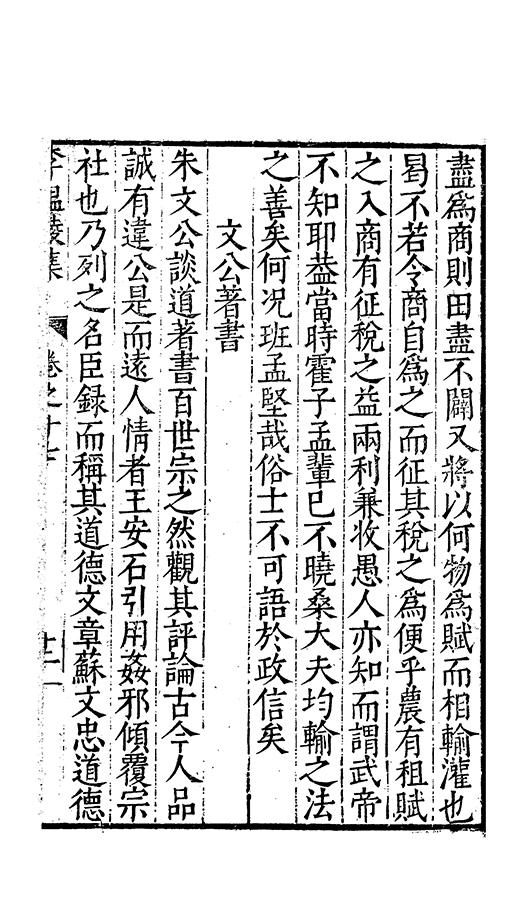 盡爲商則田盡不闢又將以何物爲賦而相輸灌也
曷不若令商自爲之而征其稅之爲便乎農有租賦
之入商有征稅之益兩利兼收愚人亦知而謂武帝
不知耶葢當時霍子孟輩已不曉桑大夫均輸之法
之善矣何况班孟堅哉俗士不可語於政信矣
文公著書
朱文公談道著書百世宗之然觀其評論古今人品
誠有違公是而遠人情者王安石引用姦邪傾覆宗
社也乃列之名臣録而稱其道德文章蘇文忠道德
李温陵集 卷之十七 十二